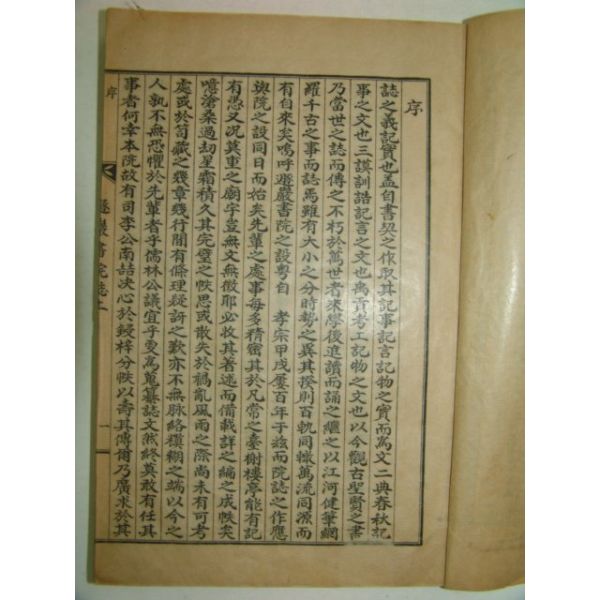 序
誌之義記實也盖自書契之作取其記事記言記物之實而爲文二典春秋記
事之文也三謨訓誥記言之文也禹貢考工記物之文也以今觀古聖賢之書
乃當世之誌而傳之不朽於萬世者來學後進讀而誦之繼之以江河健筆網
羅千古之事而誌焉雖有大小之分時勢之異其揆則百軌同轍萬流同源而
有自來矣嗚呼遯巖書院之設粤自 孝宗甲戌屢百年于玆而院誌之作應
與院之設同日而始矣先輩之處事每多精密其於凡常之臺榭樓亭能有記
有愚又况莫重之廟宇豈無文無徵耶必收其著述而備載詳之編之成帙矣
噫滄桑過劫星霜積久其完璧之帙思或散失於禍亂風雨之際尚未有可考
處或於笥藏之幾章幾行間有條理疑訝之歎亦不無脉絡糢糊之端以今之
人孰不無恐懼於先輩者乎儒林公議宜乎更爲蒐纂誌文然終莫敢有任其
事者何幸本院故有司李公南喆决心於鋟梓分帙以壽其傳爾乃廣求於其
序
遯巖書院誌二
一